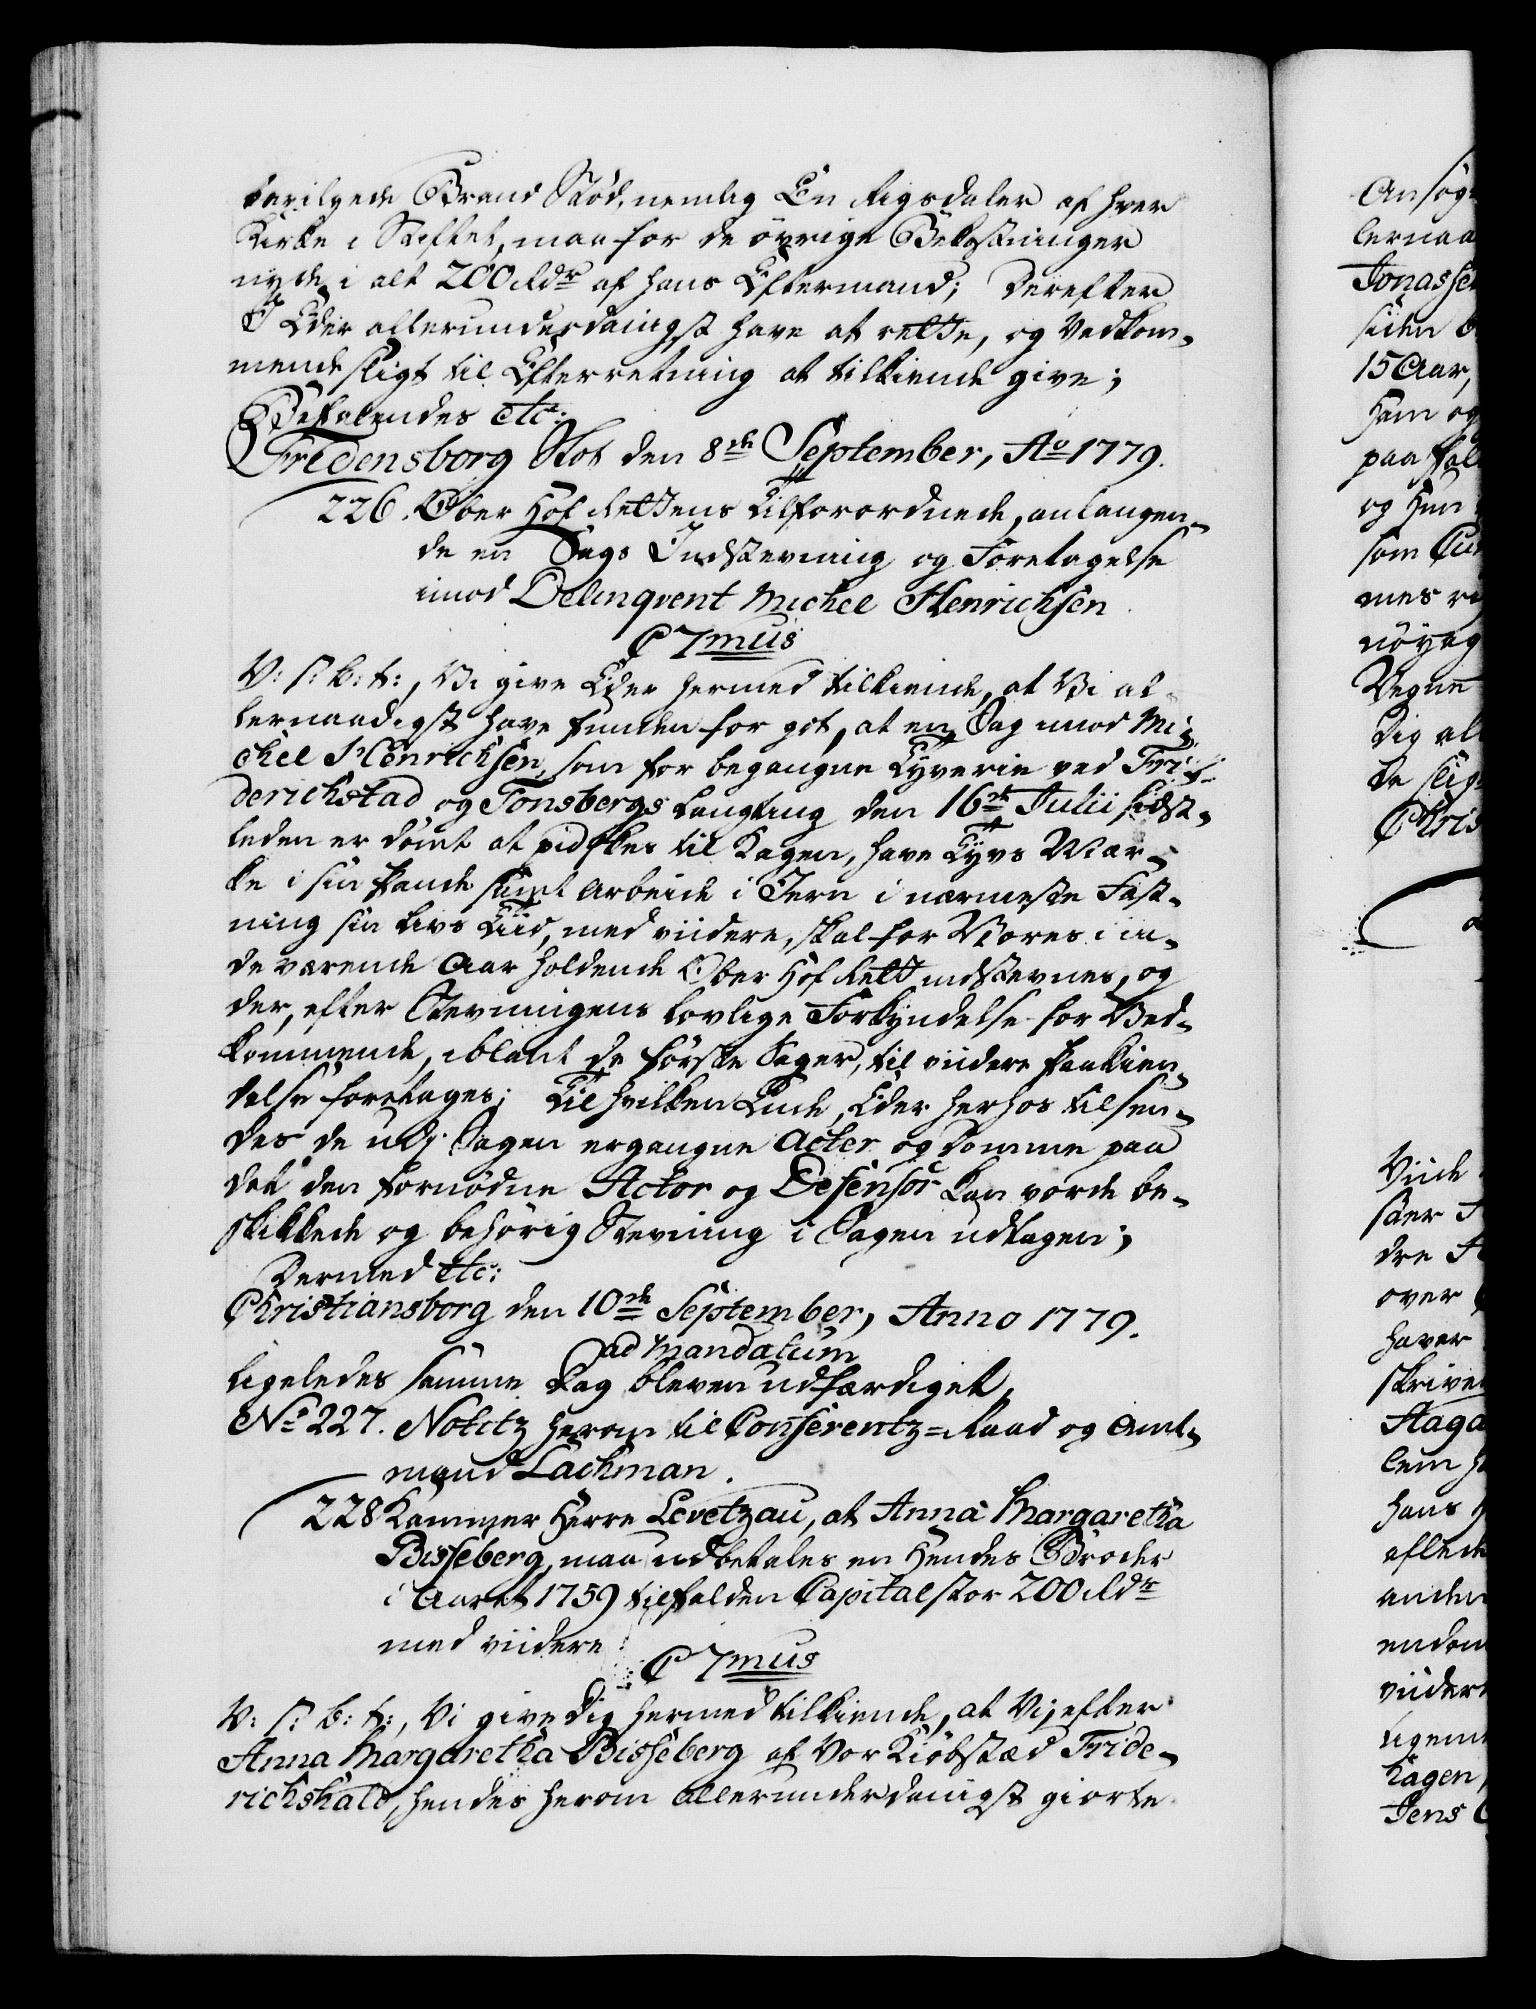 bevilgede Brand Stöd, nemlig Een Rigsdaler af hver
Kirke i Stiftet, maa for de øvrige Bekostninger
nyde i alt 200 Rdr af hans Eftermand; Derefter
I Eder allerunderdanigst have at rette, og Vedkom-
mende sligt til Efterretning at tilkiende give;
Befalendes etc:
Fredensborg Slot den 8de September, Ao 1779.
226. Ober Hof Rettens Tilforordnede, anlangen-
de en Sags Indstevning og Foretagelse
imod Delinqvent Michel Henrichsen
C 7mus
V: S: B: T:, Vi give Eder hermed tilkiende, at Vi al-
lernaadigst have funden for got, at en Sag imod Mi-
chel Henrichsen, som for begangne Tyverie ved Fri-
derichstad og Tonsbergs Laugting den 16de Julii sidst-
leden er dömt at pidskes til Kagen, have Tyvs Mær-
ke i sin Pande samt Arbeide i Jern i nærmeste Fæst-
ning sin Livs Tiid, med viidere, skal for Vores i in-
deværende Aar holdende Ober Hof Rett indstevnes, og
der, efter Stevningens lovlige Forkyndelse for Ved-
kommende, iblant de første Sager, til viidere Paakien-
delse foretages; Til hvilken Ende, Eder herhos tilsen-
des de udj Sagen ergangne Acter og Domme paa
det den fornødne Actor og Defensor kan vorde be-
skikkede og behörig Stevning i Sagen udtagen;
Dermed etc:
Christiansborg den 10de September, Anno 1779.
ad Mandatum
Ligeledes samme Dag bleven udfærdiget,
No 227. Notitz herom til Conferentz-Raad og Amt-
mand Lachman.
228 Kammer Herre Levetzau, at Anna Margaretha
Bisseberg, maa udbetales en Hendes Broder
i Aaret 1759 tilfalden Capital stor 200 Rdr
med viidere
C 7mus
V: S: B: T:, Vi give dig hermed tilkiende, at Vi, efter
Anna Margaretha Bisseberg af Vor Kiøbstæd Fride-
richshald, hendes herom allerunderdanigst giorte
Ansøg
lernaa
Jonassen
siiden
15 Aar,
ham og
paa fal
og Hun
som
mes
nöyag
Vegne
Dig al
da slig
Chris
Viide
over
haver
skrive
Haga
lem
hans
afled
anden
endom
viidere
ligem
hagen,
Jens